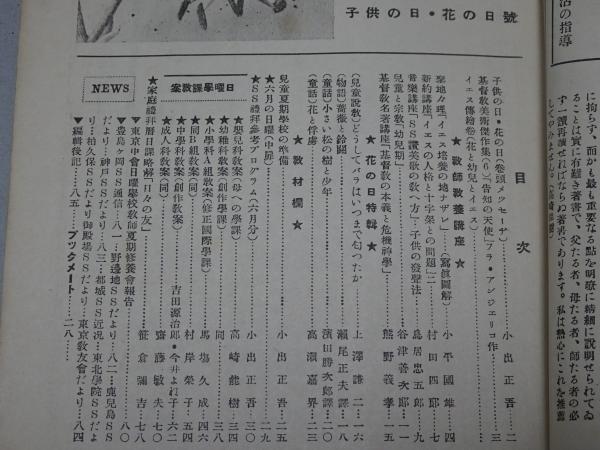 子供の日・花の日號
目次
子供の日・花の日(卷頭メツセーヂ)……小出正吾…二
基督敎美術傑作集(6)「告知の天使」フラ・アンジエリコ作……三
イエス傳繪卷(花と幼兒とイエス)
★敎師敎養講座★
聖地々理「イエス培養の地ナザレ」(寫眞圖解)……小平國雄…四
新約講座「イエスの人格と十字架との問題」二……村田四郎…七
音樂講座「SS讃美歌の敎へ方」―子供の發聲法……鳥居忠五郎…九
兒童と宗敎「幼兒期」……谷津善次郎…一一
基督敎名著講座「基督敎の本義と危機神學」……熊野義孝…一五
★花の日特輯★
(兒童說敎)どうしてバラはいつまで匂つたか……上澤謙二…一六
(物語)薔薇と鈴蘭……瀨尾正夫譯…一八
(童話)小さい松の樹と少年……濱田勝次郎譯…二〇
(童話)花と俘虜……高瀨嘉男…二三
★敎材欄★
兒童夏期學校の準備……小出正吾…二五
★六月の日曜(中扉)……二九
★SS禮拜參考プログラム(六月分)……小出正吾…三〇
日曜學課敎案
★嬰兒科敎案(母への學課)……高崎能樹…三四
★幼稚科敎案(創作學課)……同…三八
★小學科A組敎案(修正國際學課)……馬場久成…四六
★同B組敎案(同)……村岸榮子…五四
★中學科敎案(創作敎案)……吉田源治郎・今井よね子…六二
★成人科敎案(同)……齋藤敏夫…七〇
★家庭禮拜曆日課略解「日々の友」……笹倉彌吉…七八
NEWS
▼東京中會日曜學校敎師夏期修養會報告……八〇
▼豊島ヶ岡SS通信…八一・野邊地SSだより…八二・鹿兒島SS
だより…神戶SSだより…八三・都城SS近況…東北學院SSだよ
り…柏久保SSだより御殿場SSだより…東京敎友會だより…八四
▼編輯後記…八五・ブックメート……二八
活の指導
に拘らず、而かも最も重要なる點を明瞭に精細に說明せられてゐ
ることは實に有難き著書で、父たる者、母たる者、師たる者の必
ず一讀再讀せねばならぬ著書であります。私は熱心にこれを推薦